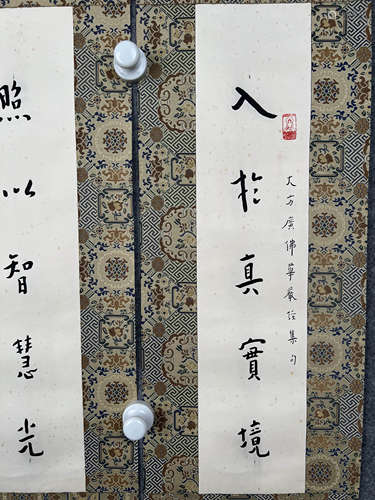 入於真實境
大方廣佛華嚴經集句
照以智慧光